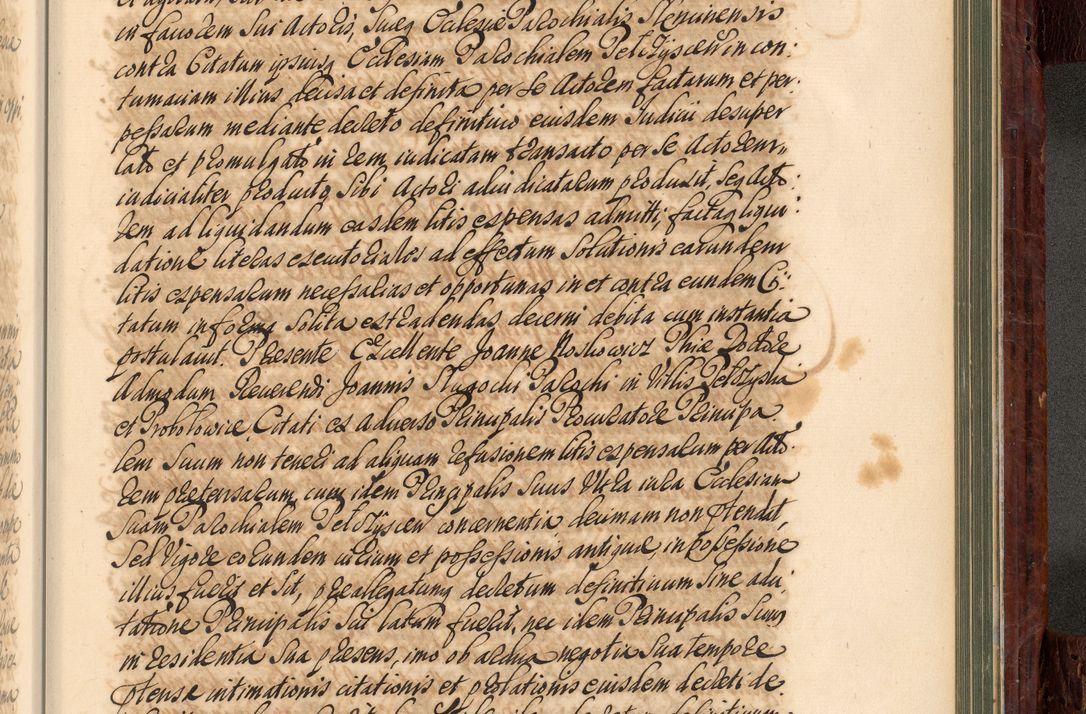 in favorem sui Actoris, suaeq Ecclesiae Parochialis Slenuinensis
contra Citatum ipsiusq Ecclesiam Parochialem Pelczyscen in con:
tumaciam illius decisa et definita per se Actorem factarum et per
pessarum mediante decreto definitivo eiusdem Iudicii desuper
lato et promulgato in rem iudicatam transacto per se Actorem
iudicialiter producto sibi Actori adiudicatarum produxit, seq Acto:
rem ad liquidandum easdem litis expensas admitti, factaq liqui:
datione literas executoriales ad effectum solutionis earundem
litis expensarum necessarias et opportunas in et contra eundem Ci:
tatum in forma solita extradendas decerni debita cum instantia
postulavit. Praesente Excellente Joanne Roskowicz Phiae Doctore
Admodum Reverendi Joannis Slugocki Parochi in Villis Pelczyska
et Probolowice Citati ex adverso Principalis Procuratore Principa
lem suum non teneri ad aliquam refusionem litis expensarum per Acto
rem praetensarum, cum idem Principalis suus Ultra iura Ecclesiam
suam Parochialem Pelczyscen concernentia, decimam non praetendat,
sed vigore eorundem iurium et possessionis antiquae in possessione
illius fuerit et sit, praeallegatumq decretum definitivum sine adci:
tatione Principalis sui latum fuerit, nec idem Principalis suus
in residentia sua praesens, imo ob ardua negotia sua tempore
praetensae intimationis citationis et prolationis eiusdem decreti de